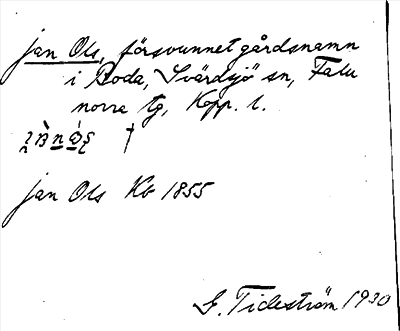 Jan Ols, försvunnet gårdsnamn
i Boda, Svärdsjö sn, Falu
norra tg, Kopp. l.
†
Jan Ols Kb 1855
G. Tideström 1930